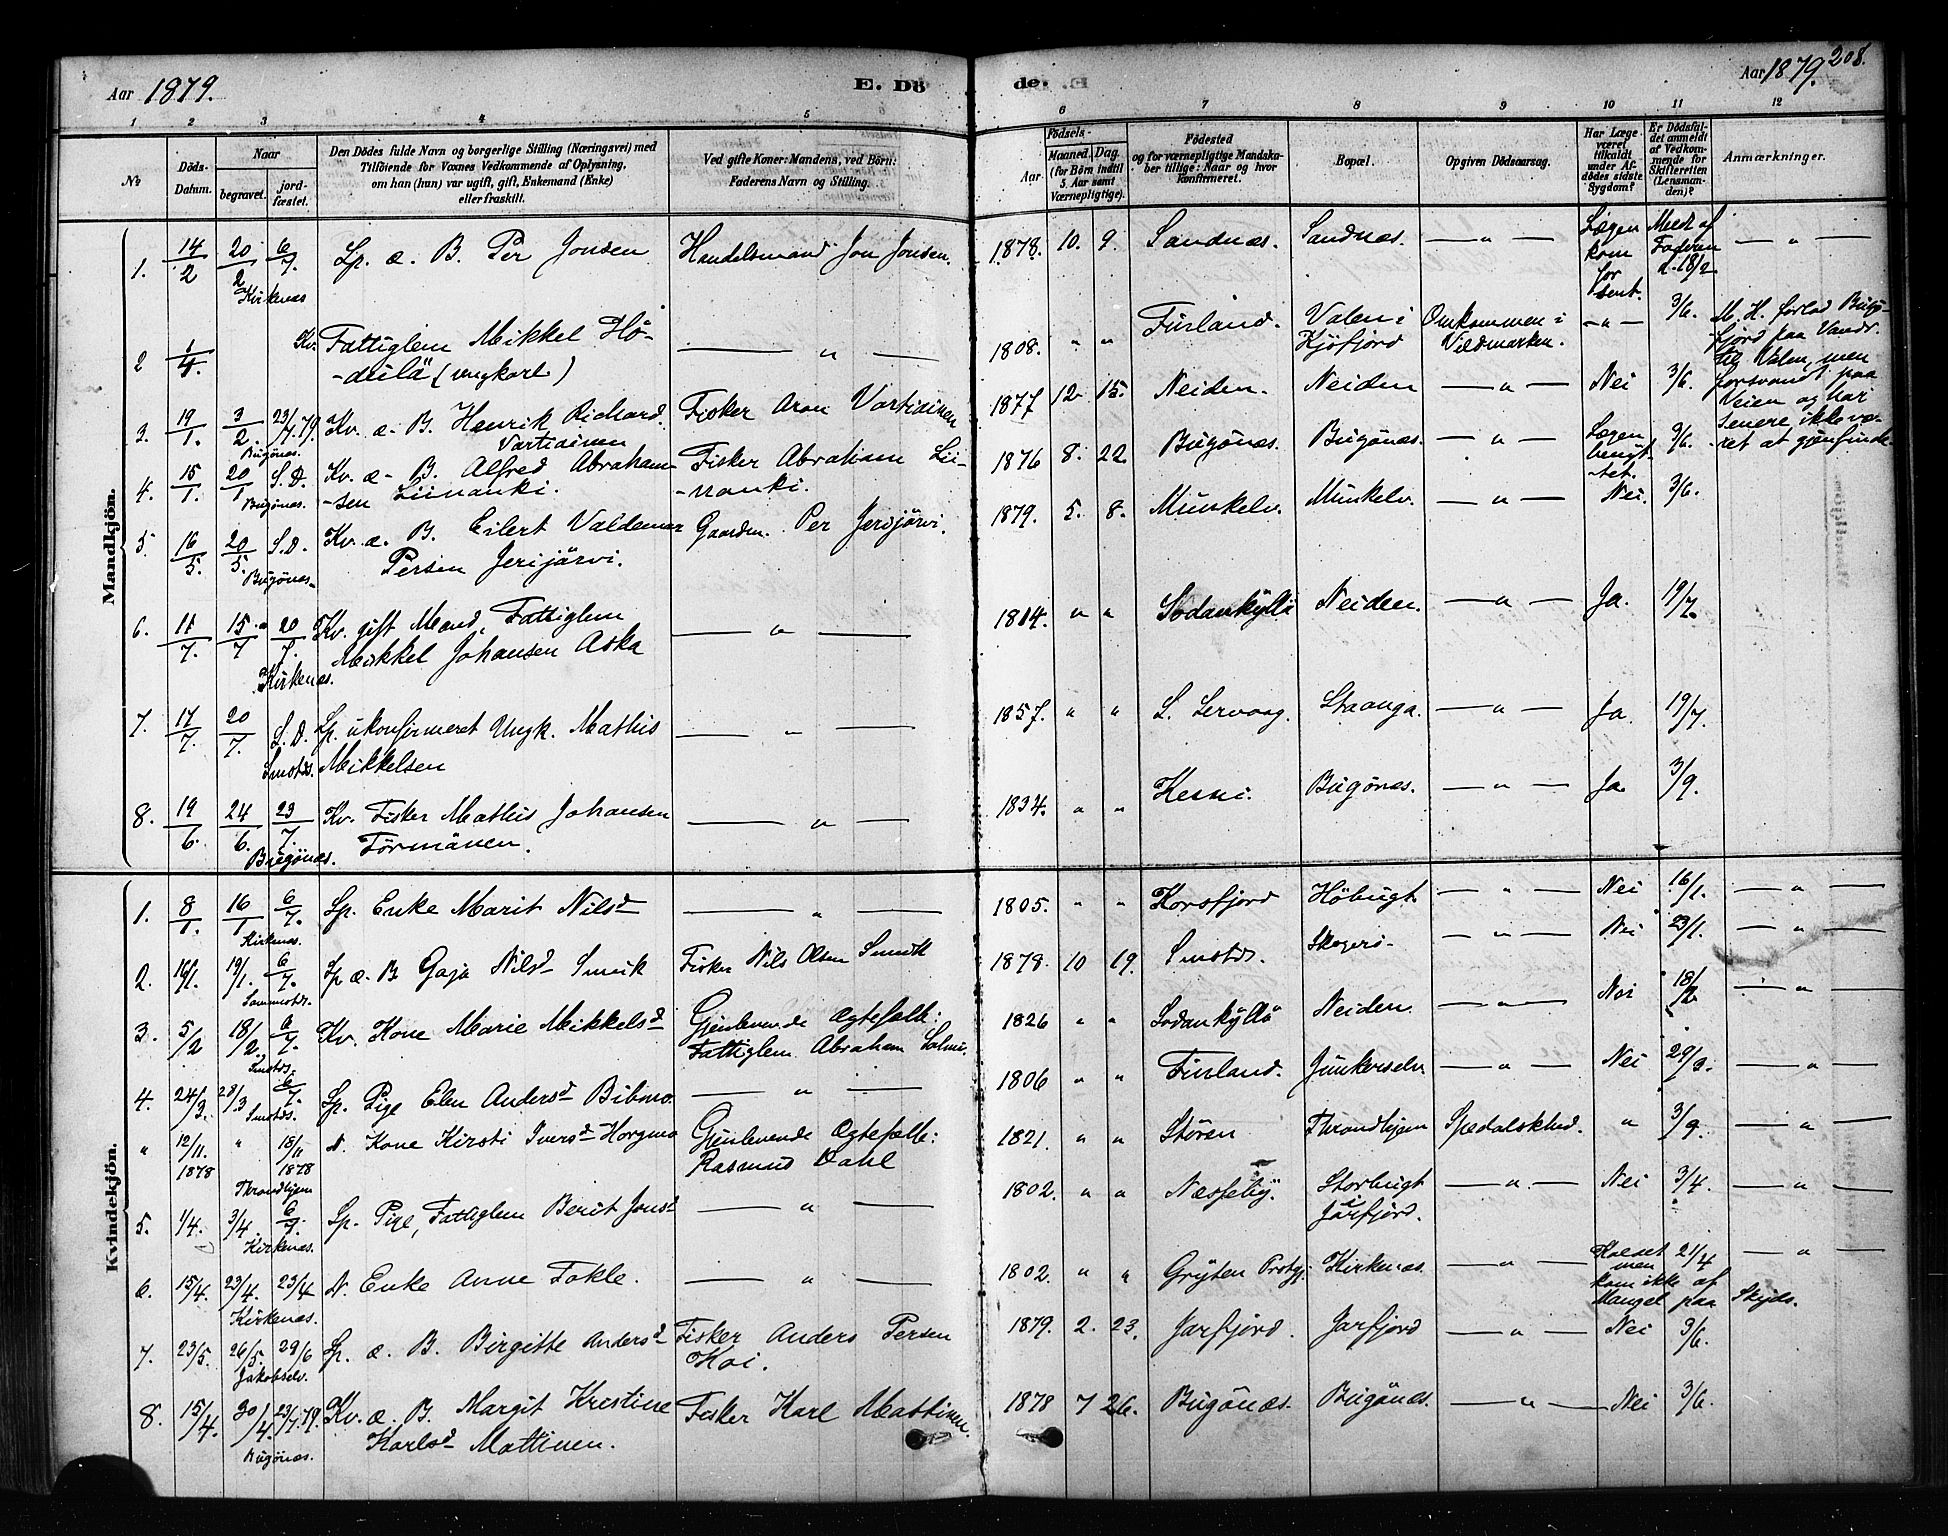 Aar 1879.
E. Dö
de.
Aar 1879. 208.
1 2 3 4 5 6 7 8 9 10 11 12
№
Döds-
Datum.
Naar
begravet.
jord-
fæstet.
Den Dödes fulde Navn og borgerlige Stilling (Næringsvei) med
Tilföiende for Voxnes Vedkommende af Oplysning,
om han (hun) var ugift, gift, Enkemand (Enke)
eller fraskilt.
Ved gifte Koner: Mandens, ved Börn:
Faderens Navn og Stilling.
Födsels-
Aar
Maaned.
Dag
(for Börn indtil
5. Aar samt
Værnepligtige).
Födested
og for værnepligtige Mandska-
ber tillige: Naar og hvor
konfirmeret.
Bopæl.
Opgiven Dödsaarsag.
Har Læge
været
tilkaldt
under Af-
dödes sidste
Sygdom?
Er Dödsfal-
det anmeldt
af Vedkom-
mende for
Skifteretten
(Lensman-
den)?
Anmærkninger.
Mandkjön.
1. 14/2 20/2 6/7. Lp. æ. B. Per Jonsen Handelsmand Jon Jonsen. 1878. 10. 9. Sandnæs. Sandnæs. — „ — Lægen
kom
for
sent. Meldt af
Faderen
d. 18/2 — „ —
Kirkenæs
2 1/4. Kv. Fattiglem Mikkel Hö-
-deilä (ungkarl) — „ — 1808. „ „ Finland. Valen i
Kjöfjord Omkommen i
Vildmarken. — „ — 3/6. M. H. forlod Bug-
fjord paa Vandr.
til Valen, men
forsvandt paa
Veien og har
senere ikke væ-
ret at gjenfinde.
3. 19/1. 3/2. 23/7.79. Kv. æ. B. Henrik Richard.
Vartiainen Fisker Aron Vartiainen 1877 12 15. Neiden. Neiden — „ — Nei 3/6.
Bugönæs.
4. 15/1. 20/1 S.D. Kv. æ. B. Alfred Abraham-
-sen Liinanki. Fisker Abraham Lii-
-nanki. 1876 8. 22. Bugönæs. Bugönæs. — „ — Lægen
benyt-
tet. 3/6.
Bugönæs.
5. 16/5. 20/5. S.D. Kv. æ. B. Eilert Valdemar
Persen Jerijärvi. Gaardm. Per Jerijärvi. 1879. 5. 8. Munkelv. Munkelv. — „ — Nei. 3/6.
Bugönæs.
6. 11/7. 15/7 20/7. Kv. gift Mand, Fattiglem
Mikkel Johansen Aska — „ — 1814. „ „ Sodankylä Neiden. — „ — Ja. 19/7.
Kirkenæs.
7. 17/7. 20/7. S.D. Lp. ukonfirmeret Ungk. Mathis
Mikkelsen — „ — 1857. „ „ L. Lervaag. Staanga. — „ — Ja. 19/7.
Smstds.
8. 19/6. 24/6. 23/7. Kv. Fisker Mathis Johansen
Törmänen. — „ — 1834. „ „ Kemi. Bugönæs. — „ — Ja. 3/9.
Bugönæs.
Kvindekjön.
1. 8/1. 16/1 6/7. Lp. Enke Marit Nilsd — „ — 1805. „ „ Korsfjord Höbugt — „ — Nei 16/1. — „ —
Kirkenæs.
2. 16/1. 19/1. 6/7. Lp æ. B Gaja Nilsd Smuk Fisker Nils Olsen Smuk 1878. 10 19. Smstds. Skogerö. — „ — Nei 23/1. — „ —
Sammstds.
3. 5/2 18/2. 6/7. Kv. Kone Marie Mikkelsd Gjenlevende Ægtefælle:
Fattiglem Abraham Salmi. 1826 „ „ Sodankylä Neiden. — „ — Nei 18/2 — „ —
Smstds.
4. 24/3. 28/3 6/7. Lp. Pige Elen Andersd Bibmo. — „ — 1806 „ „ Finland. Junkerselv. — „ — Nei 29/3. — „ —
Smstds.
„ 12/11. 1878 „ 18/11 1878 N. Kone Kirsti Iversd Horgmo Gjenlevende Ægtefælle:
Rasmus Dahl 1821. „ „ Stören Throndhjem Spedalskhed. „ 3/9. — „ —
Throndhjem
5. 1/4. 3/4. 6/7. Lp. Pige, Fattiglem Berit Jonsd — „ — 1802. „ „ Næsseby. Storbugt
i
Jarfjord. — „ — Nei 3/4. — „ —
Kirkenæs.
6. 15/4. 23/4. 23/4 N. Enke Anne Fokle. — „ — 1802. „ „ Gryten Prstgj. Kirkenæs. — „ — Kaldet
men
kom ikke af
Mangel paa Skyds. 21/4 — „ —
Kirkenæs.
7. 23/5. 26/5. 29/6 Lp. æ. B. Birgitte Andersd Fisker Anders Persen
Kai. 1879. 2. 23. Jarfjord. Jarfjord — „ — Nei 3/6.
Jakobselv.
8. 15/4. 30/4. 23/7.79. Kv. æ. B. Margit Kristine
Karlsd Mattinen. Fisker Karl Mattinen. 1878 7 26. Bugönæs. Bugönæs. — „ — Nei 3/6.
Bugönæs.